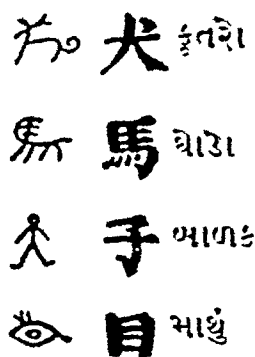 犬 કુતરો
馬 ઘોડો
子 બાળક
目 માથું